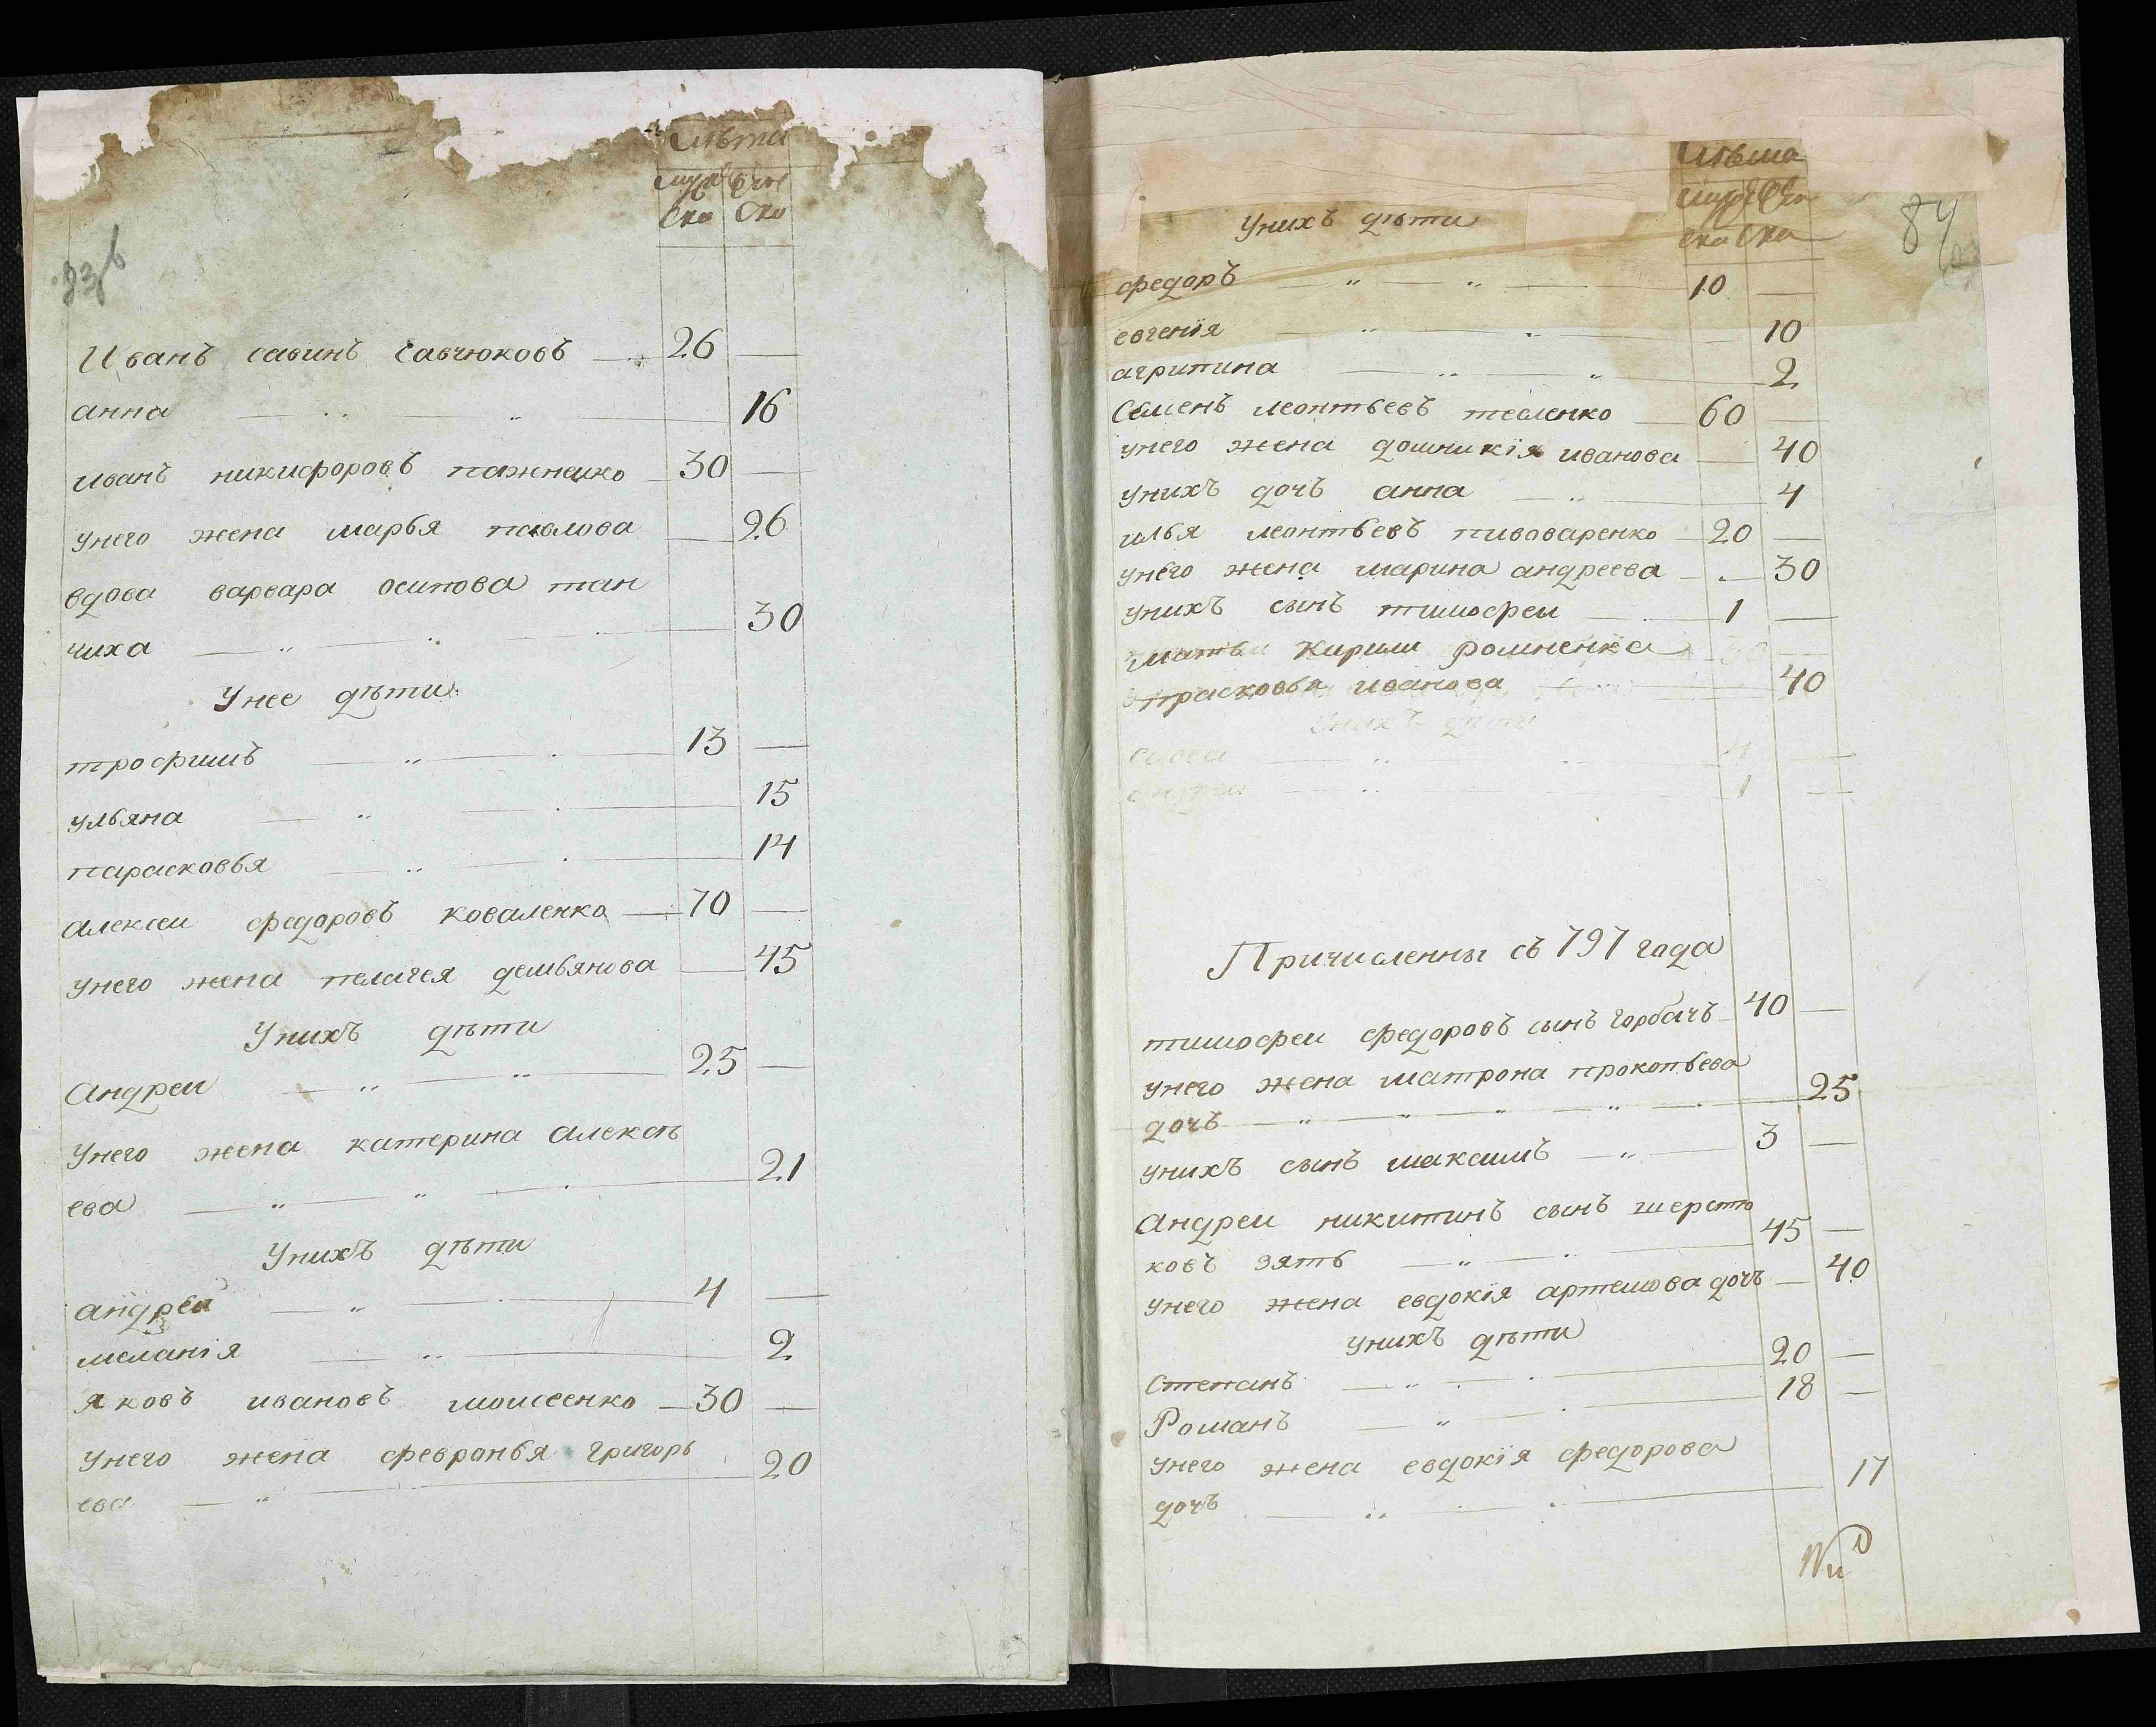 лѣта
муж жен
ска ска
83б
Иванъ савинъ савчюковъ 26 —
анна 16
иванъ никифоровъ пажненко 30 —
унего жена марья павлова — 26
вдова варвара осипова тан
чиха 30
Унее дѣти
трофимъ 13 —
ульяна 15
парасковья 14
алексеи федоровъ коваленко 70 —
унего жена пелагея демьянова — 45
Унихъ дѣти
Андреи 25 —
Унего жена катерина алексѣ
ева 21
Унихъ дѣти
андреи 4 —
меланїя 2
яковъ ивановъ моисеенко 30 —
Унего жена февронья григорь
ева 20
84
лѣта
муж жен
ска ска
Унихъ дѣти
федоръ 10 —
евгенїя — 10
агрипина 2
Семенъ леонтьевъ тесленко 60 —
унего жена домникїя иванова — 40
унихъ дочь анна 4
илья леонтьевъ пивоваренко 20 —
унего жена марина андреева — 30
унихъ сынъ тимофеи 1 —
мать кирили роменка
прасковья иванова 40
Унихъ дѣти
савва 4 —
андреи 1 —
Причисленны съ 797 года
тимофеи федоровъ сынъ горбачъ 40 —
унего жена матрона прокопьева
дочь 25
унихъ сынъ максимъ 3 —
Андреи никитинъ сынъ шерстю
ковъ зять 45 —
унего жена евдокїя артемова дочь — 40
унихъ дѣти
Степанъ 20 —
Романъ 18 —
унего жена евдокїя федорова
дочь 17